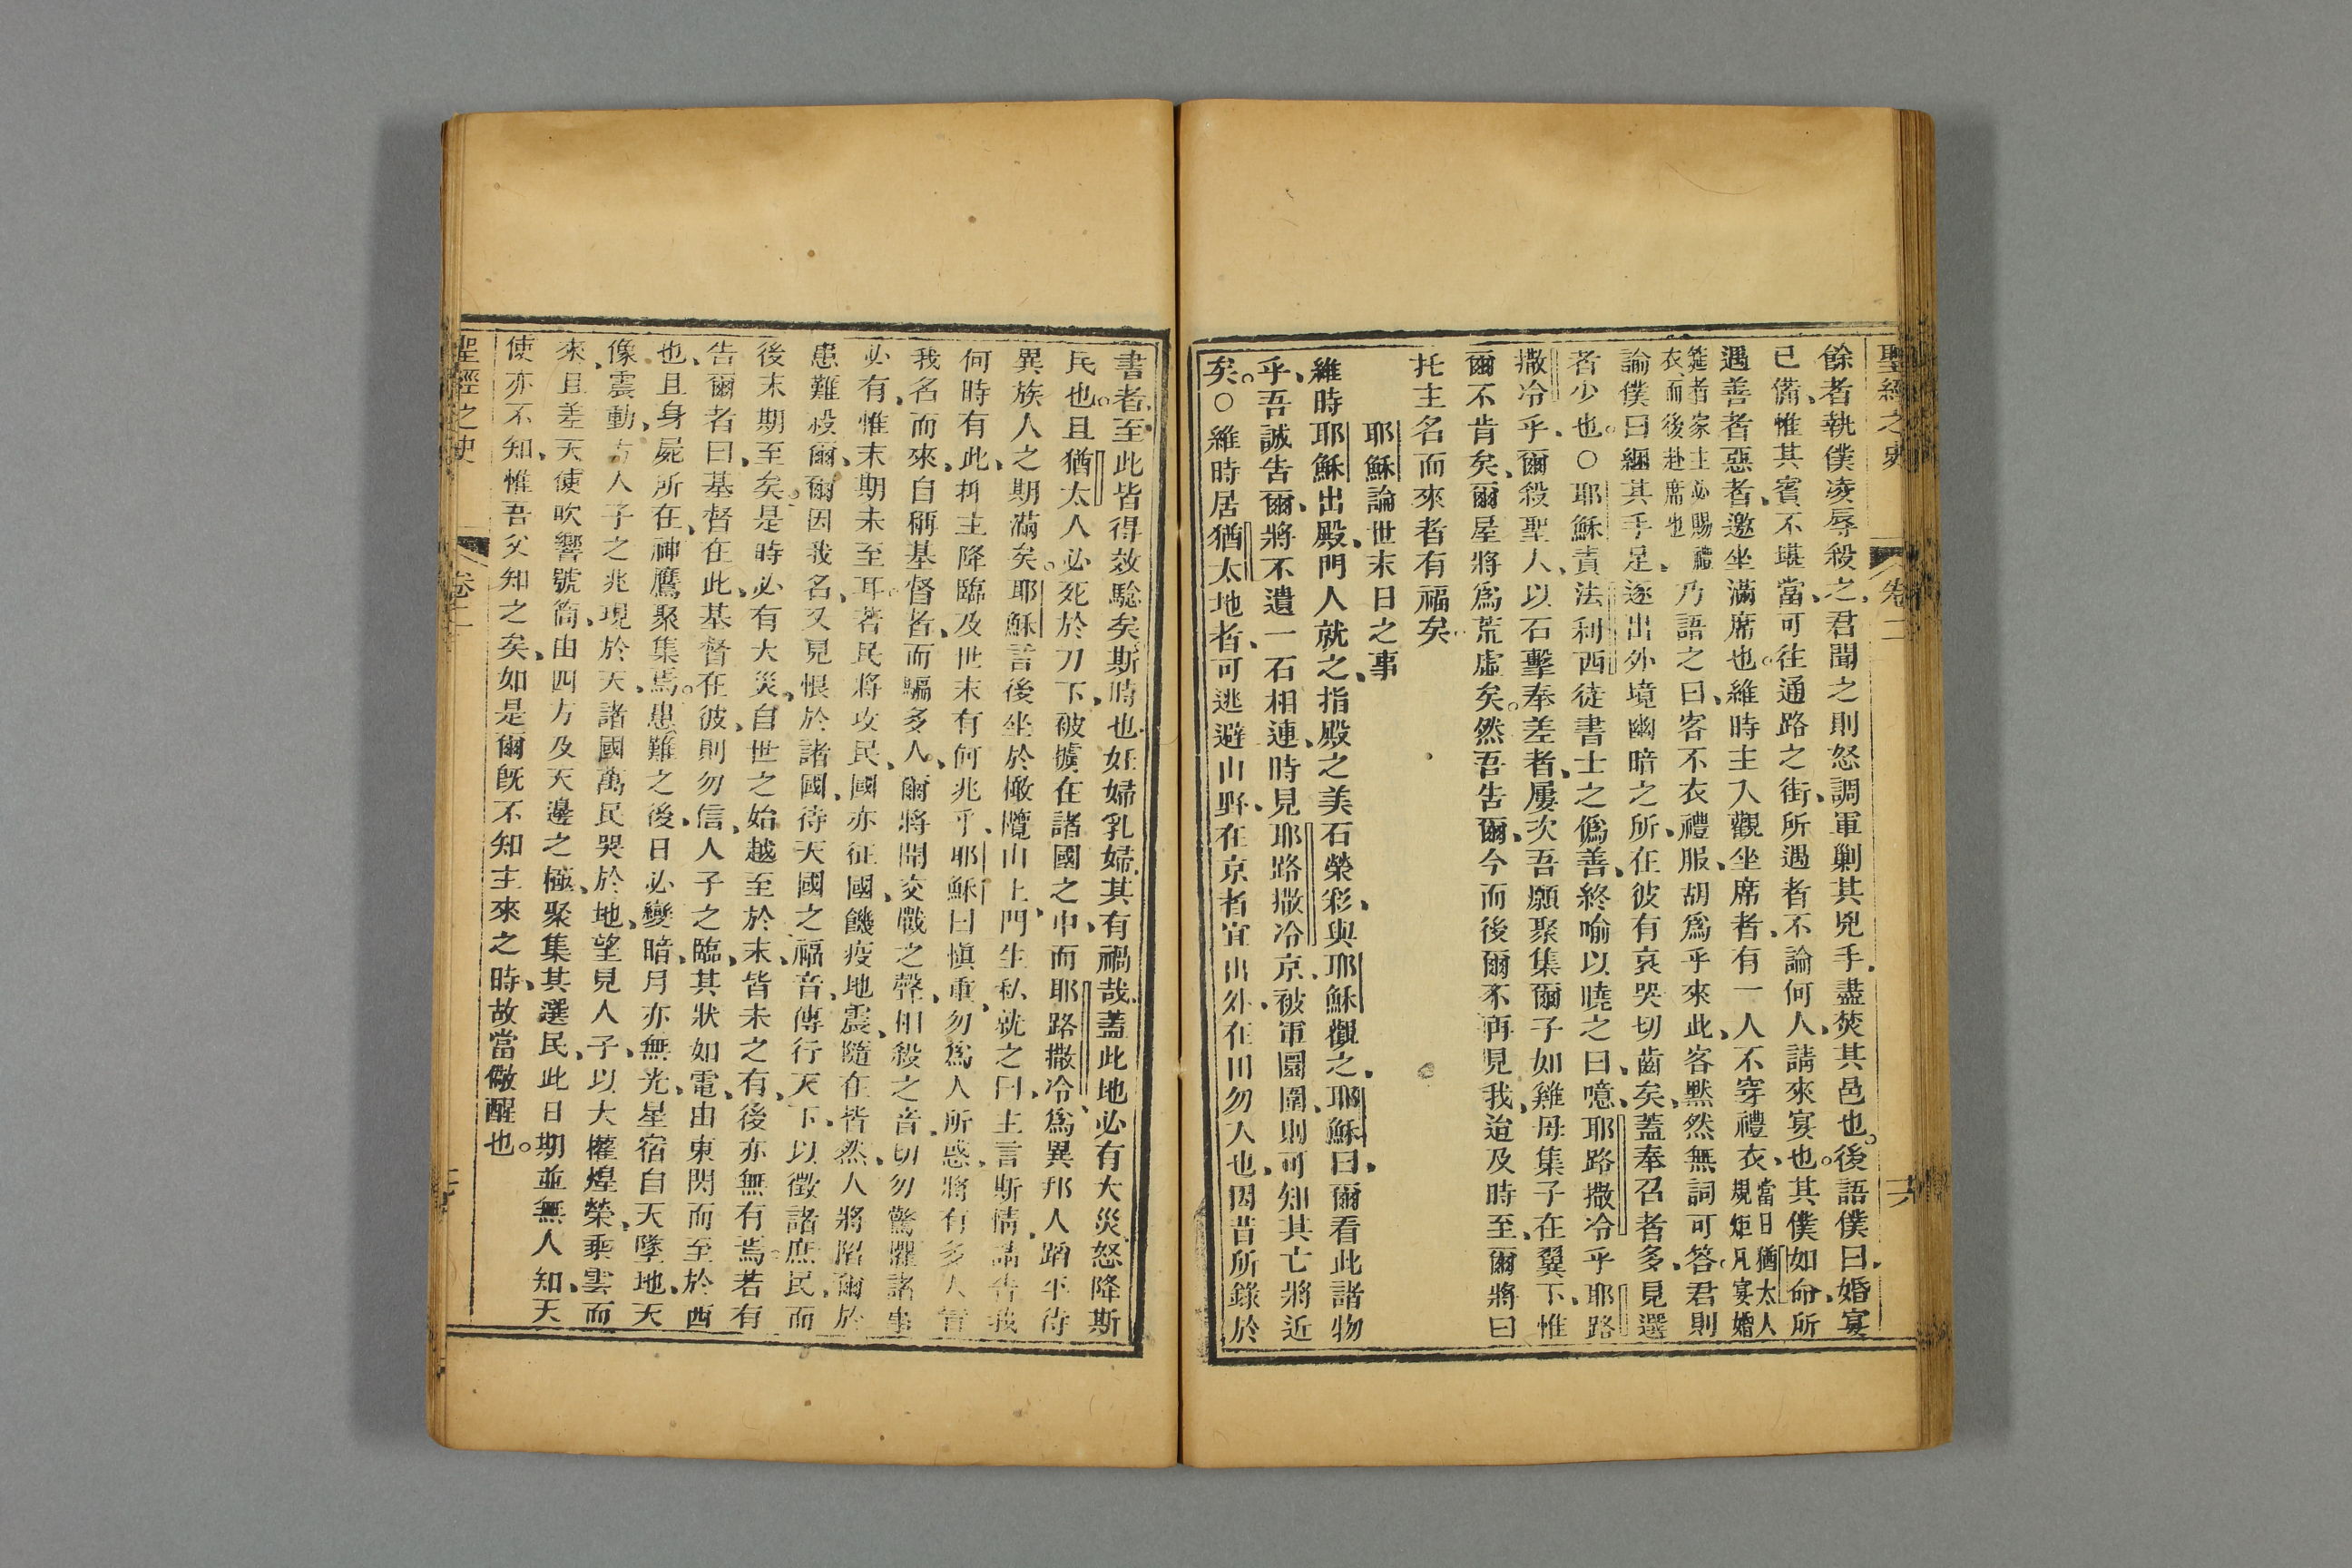 聖經之史 卷二 十六
餘者執僕凌辱殺之、君聞之則怒、調軍剿其兇手、盡焚其邑也。後語僕曰、婚宴
已備、惟其賓、不堪當、可往通路之街、所遇者、不論何人、請來宴也。其僕如命、所
遇善者惡者、邀坐滿席也。維時主入觀坐席者、有一人不穿禮衣、當日猶太人規矩凡宴婚
筵者家主必賜禮衣、而後赴席也 乃語之曰、客不衣禮服、胡為乎來此、客黙然無詞可答。君則
諭僕曰綑其手足、逐出外境幽暗之所、在彼有哀哭切齒矣、蓋奉召者多、見選
者少也。○耶穌責法利西徒書士之偽善、終喻以曉之曰、噫、耶路撒冷乎、耶路
撒冷乎、爾殺聖人、以石擊奉差者、屢次吾願聚集爾子如雞母集子在翼下、惟
爾不肯矣、爾屋將爲荒虛矣。然吾告爾、今而後爾不再見我、迨及時至、爾將曰
托主名而來者有福矣
耶穌論世末日之事
維時耶穌出殿、門人就之、指殿之美石榮彩、與耶穌觀之、耶穌曰、爾看此諸物
乎、吾誠告爾、將不遺一石相連、時見耶路撒冷京、被軍圜圍、則可知其亡將近
矣。○維時居猶太地者、可逃避山野、在京者宜出外、在田勿入也、因昔所錄於
書者、至此皆得效驗矣、斯時也、妊婦乳婦、其有禍哉、蓋此地必有大災、怒降斯
民也。且猶太人必死於刀下、被擄在諸國之中、而耶路撒冷、爲異邦人蹈平、待
異族人之期滿矣。耶穌言後坐於橄欖山上、門生私就之曰、主言斯情、請告我
何時有此、且主降臨及世末有何兆乎、耶穌曰愼重、勿爲人所惑、將有多人冒
我名而來、自稱基督者、而騙多人、爾將聞交戰之聲、相殺之音、切勿驚懼諸事
必有、惟末期未至耳。蓋民將攻民、國亦征國、饑疫地震、隨在皆然、人將陷爾於
患難、殺爾、爾因我名、又見恨於諸國、待天國之福音、傳行天下、以徵諸庶民、而
後末期至矣。是時必有大災、自世之始、越至於末、皆未之有、後亦無有焉。若有
告爾者曰、基督在此、基督在彼、則勿信、人子之臨、其狀如電、由東閃而至於西
也、且身屍所在、神鷹聚集焉。患難之後、日必變暗、月亦無光、星宿自天墜地、天
像雲動、方人子之兆、現於天、諸國萬民哭於地、望見人子、以大權煌榮、乘雲而
來、且差天使吹響號筒、由四方及天邊之極、聚集其選民、此日期並無人知、天
使亦不知、惟吾父知之矣、如是爾旣不知主來之時、故當儆醒也。
聖經之史 卷二